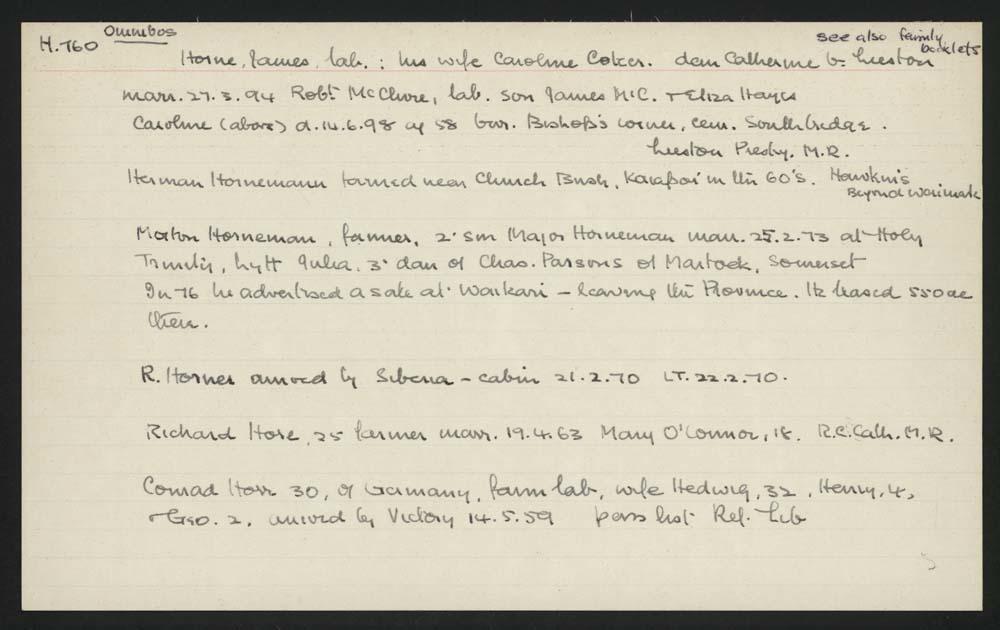 H.760 Omnibos
see also family booklets
Horne, James, lab. : his wife Caroline Coker. dau Catherine b. Leeston
marr. 27.3.94 Robt McClure, lab. son James McC. + Eliza Hayes
Caroline (above) d. 14.6.98 ag 58 bur. Bishop's corner, cem. Southbridge.
Leeston Presby. M.R.
Herman Hornemann farmed near Church Bush, Kaiapoi in the 60's. Hawkins
Beyond Waimak
Morton Horneman, farmer, 2. son Major Horneman marr. 25.2.73 at Holy
Trinity, Lytt Julia. 3. dau of Chas. Parsons of Martock, Somerset
In 76 he advertised a sale at Waikari - leaving the Province. He leased 550 ac
there.
R. Horner arrived by Siberia - cabin 21.2.70 LT. 22.2.70.
Richard Hore, 25 farmer marr. 19.4.63 Mary O'Connor, 18. R.C. Cath. M.R.
Conrad Horr 30, of Germany, farm lab, wife Hedwig, 32, Henry, 4,
+ Geo. 2, arrived by Victory 14.5.59 pass list Ref. Lib